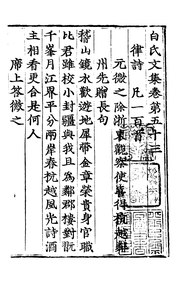 白氏文集卷第五十三
律詩 凡一百首
元微之除浙東觀察使喜得杭越鄰
州先贈長句
稽山鏡水歡遊地犀帶金章榮貴身官職
比君雖校小封疆與我且為鄰郡樓對翫
千峯月江界平分兩岸春杭越風光詩酒
主相看更合是何人
席上答微之